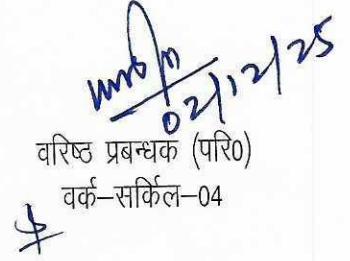 02/12/25
वरिष्ठ प्रबन्धक (परि0)
वर्क-सर्किल-04